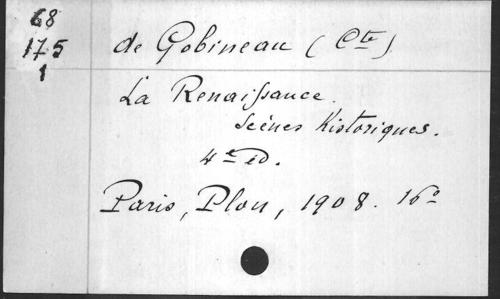 68
175
1
de Gobineau (Cte)
La Renaissance.
Scènes Historiques.
4e éd.
Paris, Plon, 1908. 16o